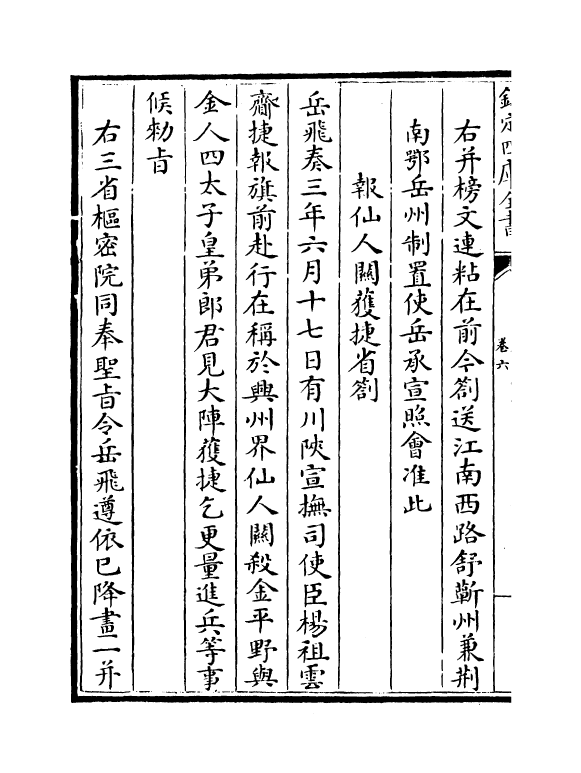 欽定四庫全書
卷六
右并榜文連粘在前今劄送江南西路舒蘄州兼荆
南鄂岳州制置使岳承宣照會准此
報仙人關獲捷省劄
岳飛奏三年六月十七日有川陜宣撫司使臣楊祖雲
齎捷報旗前赴行在稱於興州界仙人關殺金平野與
金人四太子皇弟郎君見大陣獲捷乞更量進兵等事
候勅旨
右三省樞密院同奉聖旨令岳飛遵依已降畫一并